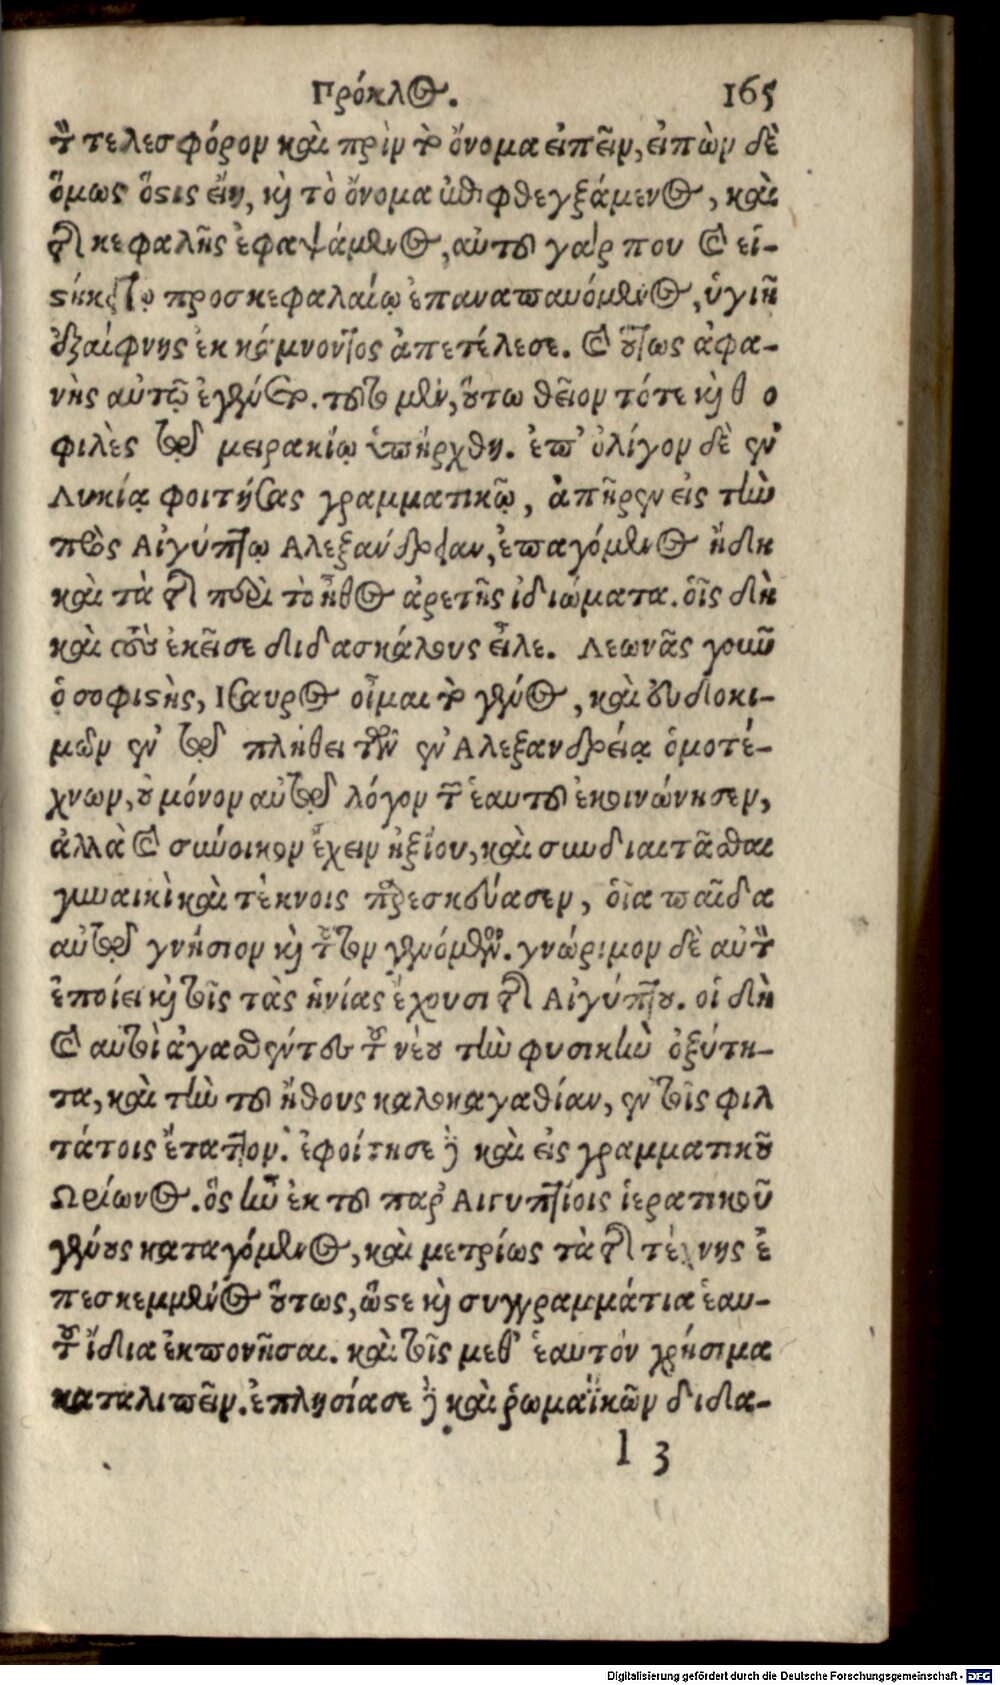 Πρόκλος. 165
τὸν τελεσφόρον καὶ πρὶν τὸ ὄνομα εἰπεῖν, εἰπὼν δὲ
ὅμως ὅστις εἴη, καὶ τὸ ὄνομα ὑποφθεγξάμενος, καὶ
τῆς κεφαλῆς ἐφαψάμενος, αὐτοῦ γάρ που καὶ εἱ-
στήκει τῷ προσκεφαλαίῳ ἐπαναπαυόμενος, ὑγιῆ
ἐξαίφνης ἐκ κάμνοντος ἀπετέλεσε. καὶ οὕτως ἀφα-
νὴς αὐτῷ ἐγένετο. τοῦτο μὲν, οὕτω θεῖον τότε καὶ θεο
φιλὲς τῷ μειρακίῳ ὑπήρχθη. ἐπ' ὀλίγον δὲ ἐν
Λυκίᾳ φοιτήσας γραμματικῷ, ἀπῆρεν εἰς τὴν
πρὸς Αἰγύπτῳ Αλεξανδρείαν, ἐπαγόμενος ἤδη
καὶ τὰ τῆς περὶ τὸ ἦθος ἀρετῆς ἰδιώματα. οἷς δὴ
καὶ τοὺς ἐκεῖσε διδασκάλους εἷλε. Λεωνᾶς γοῦν
ὁ σοφιστὴς, Ισαυρος οἶμαι τὸ γένος, καὶ εὐδοκι-
μῶν ἐν τῷ πλήθει τῶν ἐν Αλεξανδρείᾳ ὁμοτέ-
χνων, οὐ μόνον αὐτῷ λόγον τῶν ἑαυτοῦ ἐκοινώνησεν,
ἀλλὰ καὶ σύνοικον ἔχειν ἠξίου, καὶ συνδιαιτᾶσθαι
γυναικὶ καὶ τέκνοις παρεσκεύασεν, οἷα παῖδα
αὐτῷ γνήσιον καὶ τοῦτον γενόμενον. γνώριμον δὲ αὐτὸν
ἐποίει καὶ τοῖς τὰς ἡνίας ἔχουσι τῆς Αἰγύπτου. οἱ δὴ
καὶ αὐτοὶ ἀγασθέντες τοῦ νέου τὴν φυσικὴν ὀξύτη-
τα, καὶ τὴν τοῦ ἤθους καλοκαγαθίαν, ἐν τοῖς φιλ
τάτοις ἔταττον. ἐφοίτησε δὲ καὶ εἰς γραμματικοῦ
Ωρίωνος. ὃς ἦν ἐκ τοῦ παρ' Αιγυπτίοις ἱερατικοῦ
γένους καταγόμενος, καὶ μετρίως τὰ τῆς τέχνης ἐ
πεσκεμμένος οὕτως, ὥστε καὶ συγγραμμάτια ἑαυ-
τοῦ ἴδια ἐκπονῆσαι. καὶ τοῖς μεθ' ἑαυτὸν χρήσιμα
καταλιπεῖν. ἐπλησίασε δὲ καὶ ῥωμαϊκῶν διδα-
l 3
Digitalisierung gefördert durch die Deutsche Forschungsgemeinschaft - DFG